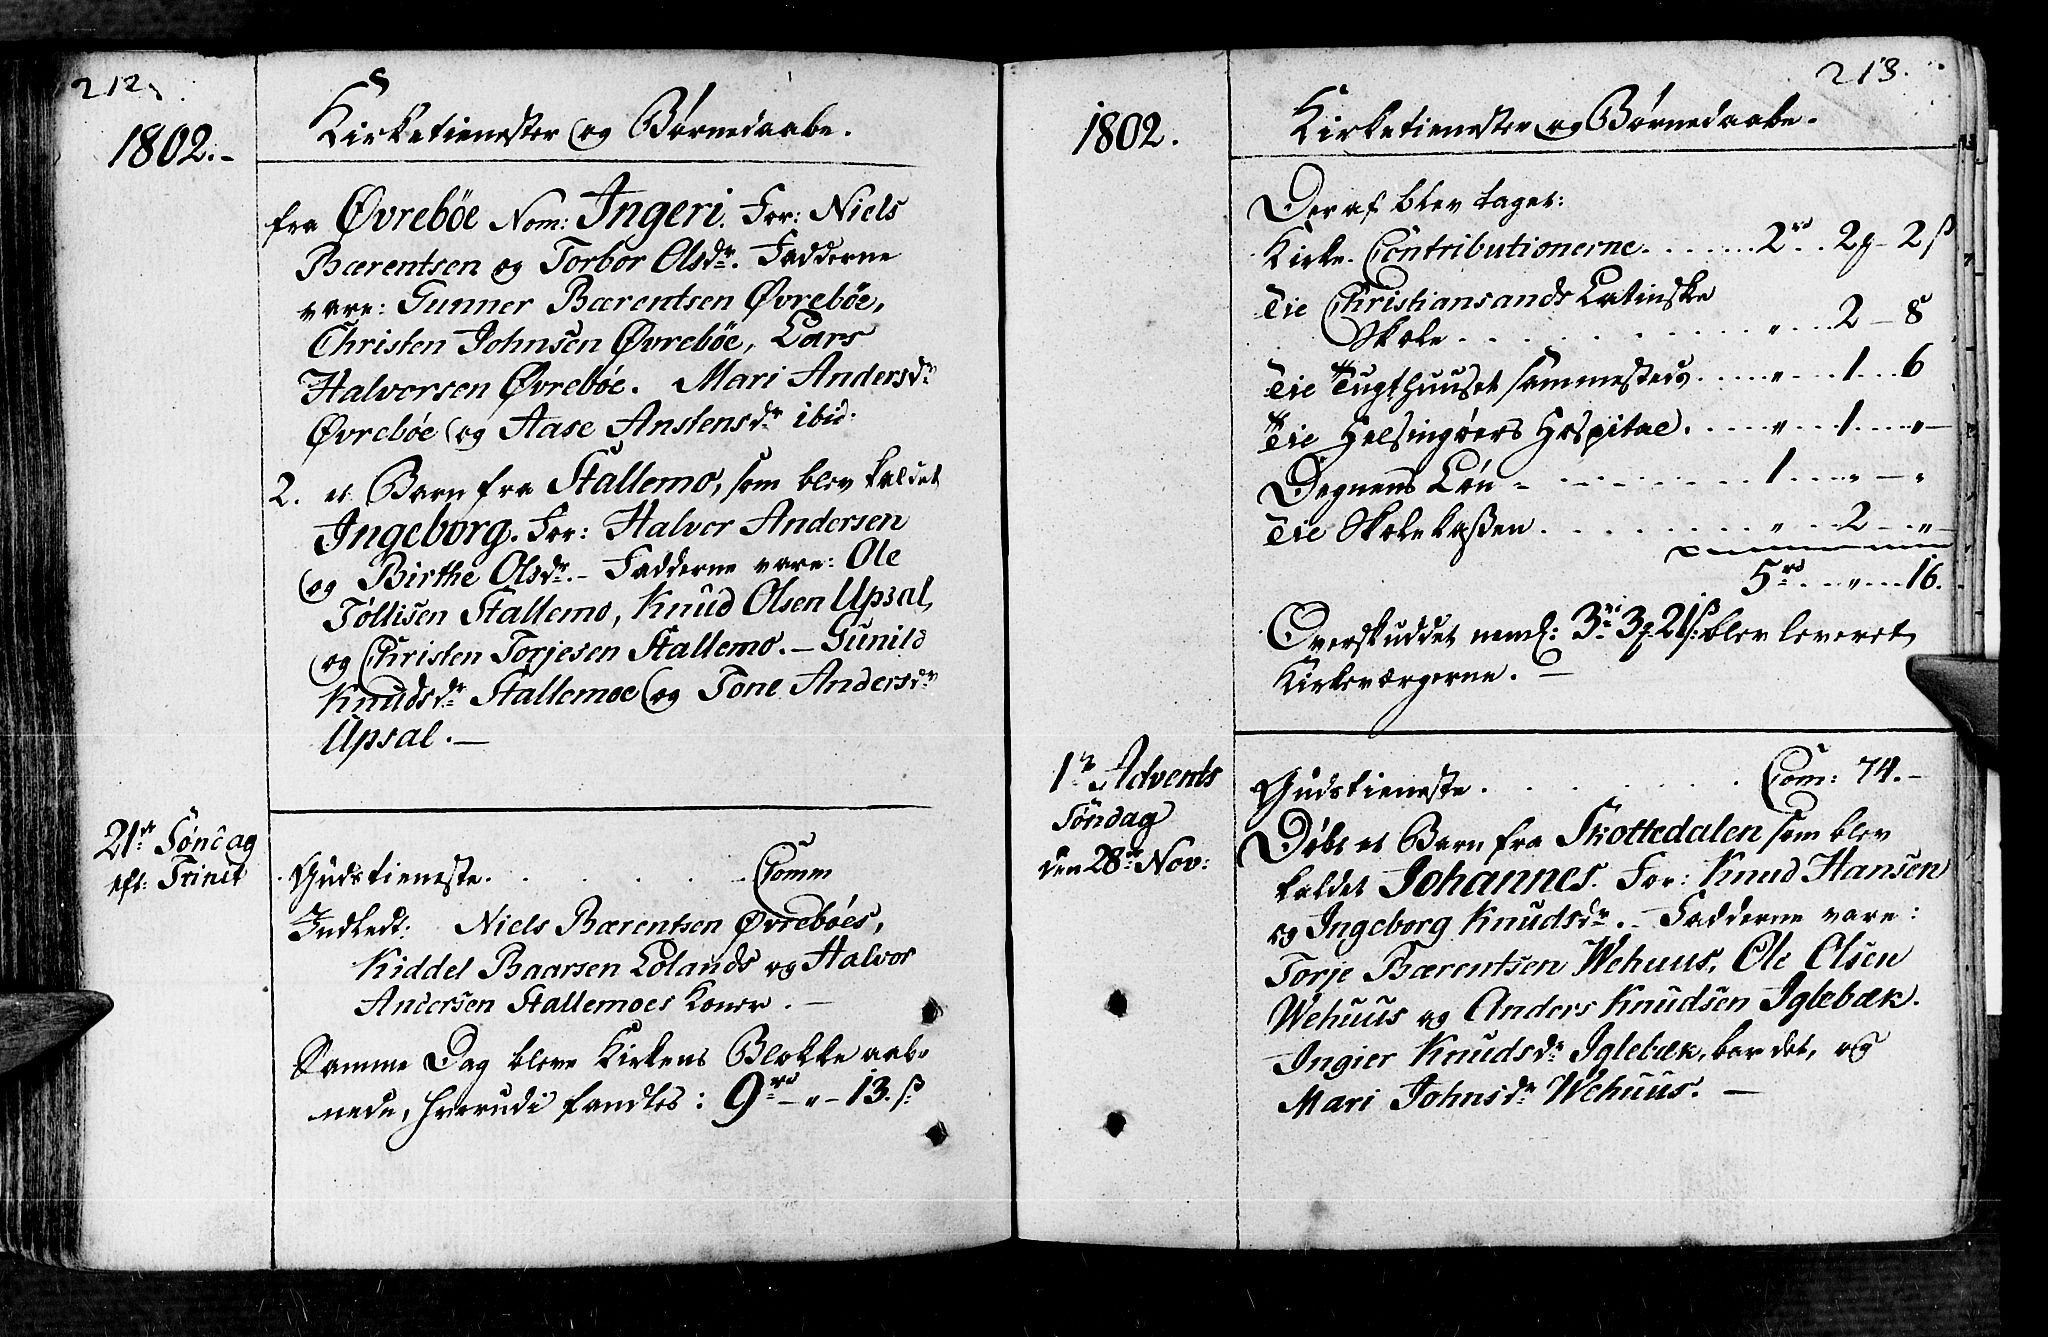 212.
1802.-
Kirketienester og Børnedaabe.
fra Øvrebøe Nom: Ingeri. For: Niels
Bærentsen og Torbor Olsdr. Fadderne
vare: Gunner Bærentsen Øvrebøe,
Christen Johnsen Øvrebøe, Lars
Halvorsen Øvrebøe. Mari Andersdr
Øvrebøe og Aase Anstensdr ibid.
2. et Barn fra Stallemo, som blev kaldet
Ingeborg. For: Halvor Andersen
og Birthe Olsdr.- Fadderne vare: Ole
Tøllisen Stallemo, Knud Olsen Upsal,
og Christen Torjesen Stallemo. - Gunild
Knudsdr Stallemoe og Tone Andersdr
Upsal. -
21de Søndag
eft: Trinit
Gudstieneste. . . . . Comm
Indledt: Niels Bærentsen Øvrebøes,
Kiddel Baarsen Lolands og Halvor
Andersen Stallemoes Koner. -
Samme Dag bleve Kirkens Blokke aab-
nede, hvorudi fandtes: 9rd - " - 13.ß
213.
1802.
Kirketienester og Børnedaabe.
Deraf blev taget:
Kirke-Contributionerne. . . . . 2rd. . 2ƒ - 2ß
Til Christiansands Latinske
Skole. . . . . . . . " . . 2 - 8
Til Tugthuuset sammesteds. . . . " . . 1 . . 6
Til Helsingøers Hospital. . . . " . . 1 . . "
Degnens Løn - . . . . . . 1 . . " - "
Til Skolekaßen. . . . . . " . . 2 - "
5rd. . " . . 16.
Overskuddet neml: 3rd 3ƒ 21ß: blev leveret
Kirkeværgerne. -
1ste Advents
Søndag
den 28de Nov:
Gudstieneste. . . . . . . Com: 74.-
Døbt et Barn fra Skottedalen som blev
kaldet Johannes. For: Knud Hansen
og Ingeborg Knudsdr.- Fadderne vare:
Torje Bærentsen Wehuus, Ole Olsen
Wehuus og Anders Knudsen Iglebæk.
Ingier Knudsdr Iglebæk, bar det, og
Mari Johnsdr Wehuus. -